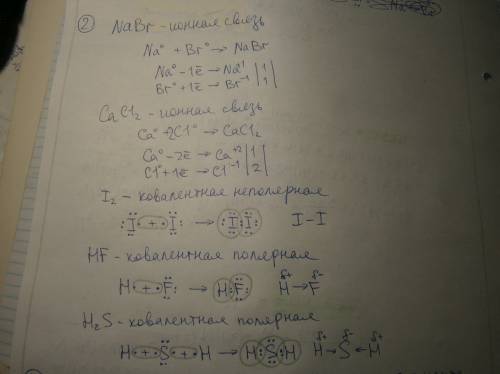 ② NaBr - ионная связь
Na⁰ + Br⁰ → NaBr
Na⁰ - 1ē → Na⁺¹ | 1 |
Br⁰ + 1ē → Br⁻¹ | 1 |
CaCl₂ - ионная связь
Ca⁰ + 2Cl⁰ → CaCl₂
Ca⁰ - 2ē → Ca⁺² | 1 |
Cl⁰ + 1ē → Cl⁻¹ | 2 |
I₂ - ковалентная неполярная
:I· + ·I: → :I:I: I-I
HF - ковалентная полярная
H· + ·F: → H:F: H→F δ+ δ-
H₂S - ковалентная полярная
H· + ·S· + ·H → H:S:H H→S←H δ+ δ- δ+